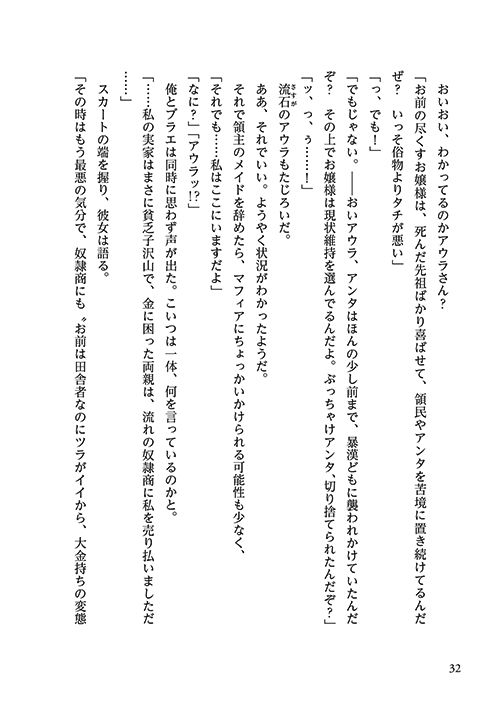 おいおい、わかってるのかアウラさん？
「お前の尽くすお嬢様は、死んだ先祖ばかり喜ばせて、領民やアンタを苦境に置き続けてるんだ
ぜ？　いっそ俗物よりタチが悪い」
「っ、でも！」
「でもじゃない。――おいアウラ、アンタはほんの少し前まで、暴漢どもに襲われかけていたんだ
ぞ？　その上でお嬢様は現状維持を選んでるんだよ。ぶっちゃけアンタ、切り捨てられたんだぞ？」
「ッ、っ、ぅ………！」
流石のアウラもたじろいだ。
さすが
ああ、それでいい。ようやく状況がわかったようだ。
それで領主のメイドを辞めたら、マフィアにちょっかいかけられる可能性も少なく、
「それでも……私はここにいますだよ」
「なに？」「アウラッ!?」
俺とブラエは同時に思わず声が出た。こいつは一体、何を言っているのかと。
「……私の実家はまさに貧乏子沢山で、金に困った両親は、流れの奴隷商に私を売り払いましただ
……」
スカートの端を握り、彼女は語る。
「その時はもう最悪の気分で、奴隷商にも〝お前は田舎者なのにツラがイイから、大金持ちの変態
32